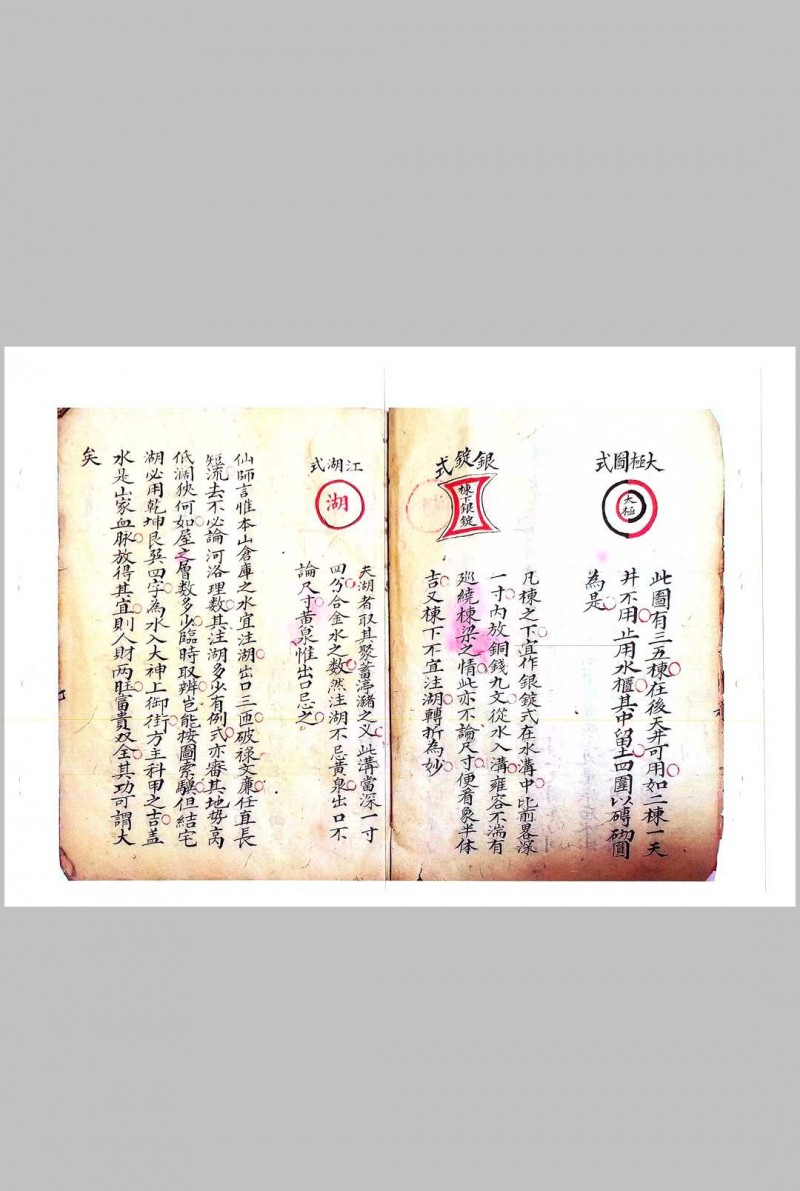 大極圖式
大極
此圖有三五棟在後天井可用如二棟一天
井不用止用水櫃其中留土四圍以磚砌圓
為是
銀錠式
棟下銀錠
凡棟之下宜作銀錠式在水溝中比前畧深
一寸內放銅錢九文從水入溝雍容不湍有
巡繞棟梁之情此亦不論尺寸便看象半体
吉又棟下不宜注湖轉折為妙
江湖式
湖
夫湖者取其聚蓄渟瀦之义此溝當深一寸
四分合金水之数然注湖不忌黃泉出口不
論尺寸黃泉惟出口忌之
仙師言惟本山倉庫之水宜注湖出口三匝破祿文廉任直長
短流去不必論河洛理数其注湖多少有例式亦審其地势高
低濶狹何如屋之層数多少臨時取辨岂能按圖索驥但結宅
湖必用乾坤艮巽四字為水入大神上御街方主科甲之吉盖
水是山家血脉放得其宜則人財两旺富貴双全其功可謂大
矣